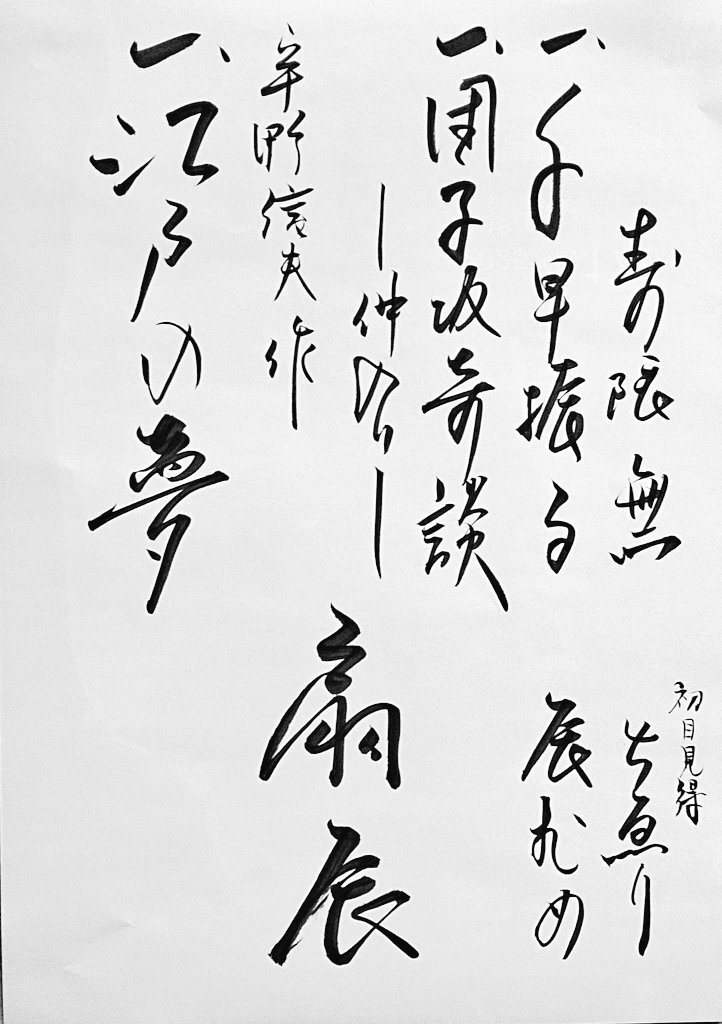 寿限無
初目見得
一、千早振る
辰むめ
一、団子坂奇談
―仲入り―
宇野信夫作
一、江戸の夢
扇辰